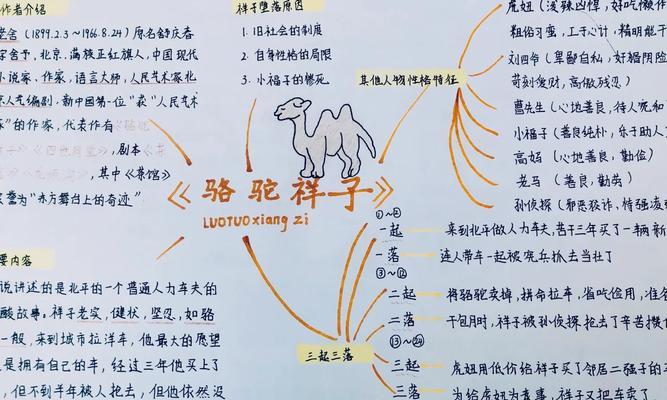 作者介绍
老舍（1899.2.3～1966.8.24）原名舒庆春
字舍予，北京，满族正红旗人，中国现代
小说家、作家，语言大师，人民艺术家，北
京人艺编剧，新中国第一位“获”“人民艺术
家”的作家，代表作有
，剧本
，其中《茶馆》
誉为“东方舞台上的奇迹”
祥子堕落原因
1. 旧社会的制度
2. 自身性格的局限
3. 小福子的惨死
其他人物性格特征
虎妞（泼辣凶悍，好吃懒作
粗俗刁蛮，工于心计，精明能干
刘四爷（卑鄙自私，奸猾阴险
苛刻爱财，高傲残忍）
曹先生（心地善良，待人宽和
小福子（善良纯朴，乐于助人
高妈（心地善良，勤俭）
老马（善良，勤劳）
孙侦探（邪恶狡诈，恃强凌弱
《骆驼祥子》
LUOTUOxiang zi
要内容
说讲述的是北平的一个普通人力车夫的
酸故事。祥子老实，健状，坚忍，如骆
一般，来到城市拉洋车，他最大的愿望
是拥有自己的车，经过三年他买上了
，但不到半年被人抢去，但他依然没
三起三落
①～②
一起 来到北平做人力车夫，苦干三年买了一辆新
一落 连人带车一起被宪兵抓去当壮丁
③～⑫
二起 将骆驼卖掉，拼命拉车，省吃俭用，准备
二落 干包月时，祥子被孙侦探抢去了辛苦攒
⑬～㉔
三起 虎妞用低价给祥子买了邻居二强子的车
三落 为给虎妞办丧事，祥子又把车卖了